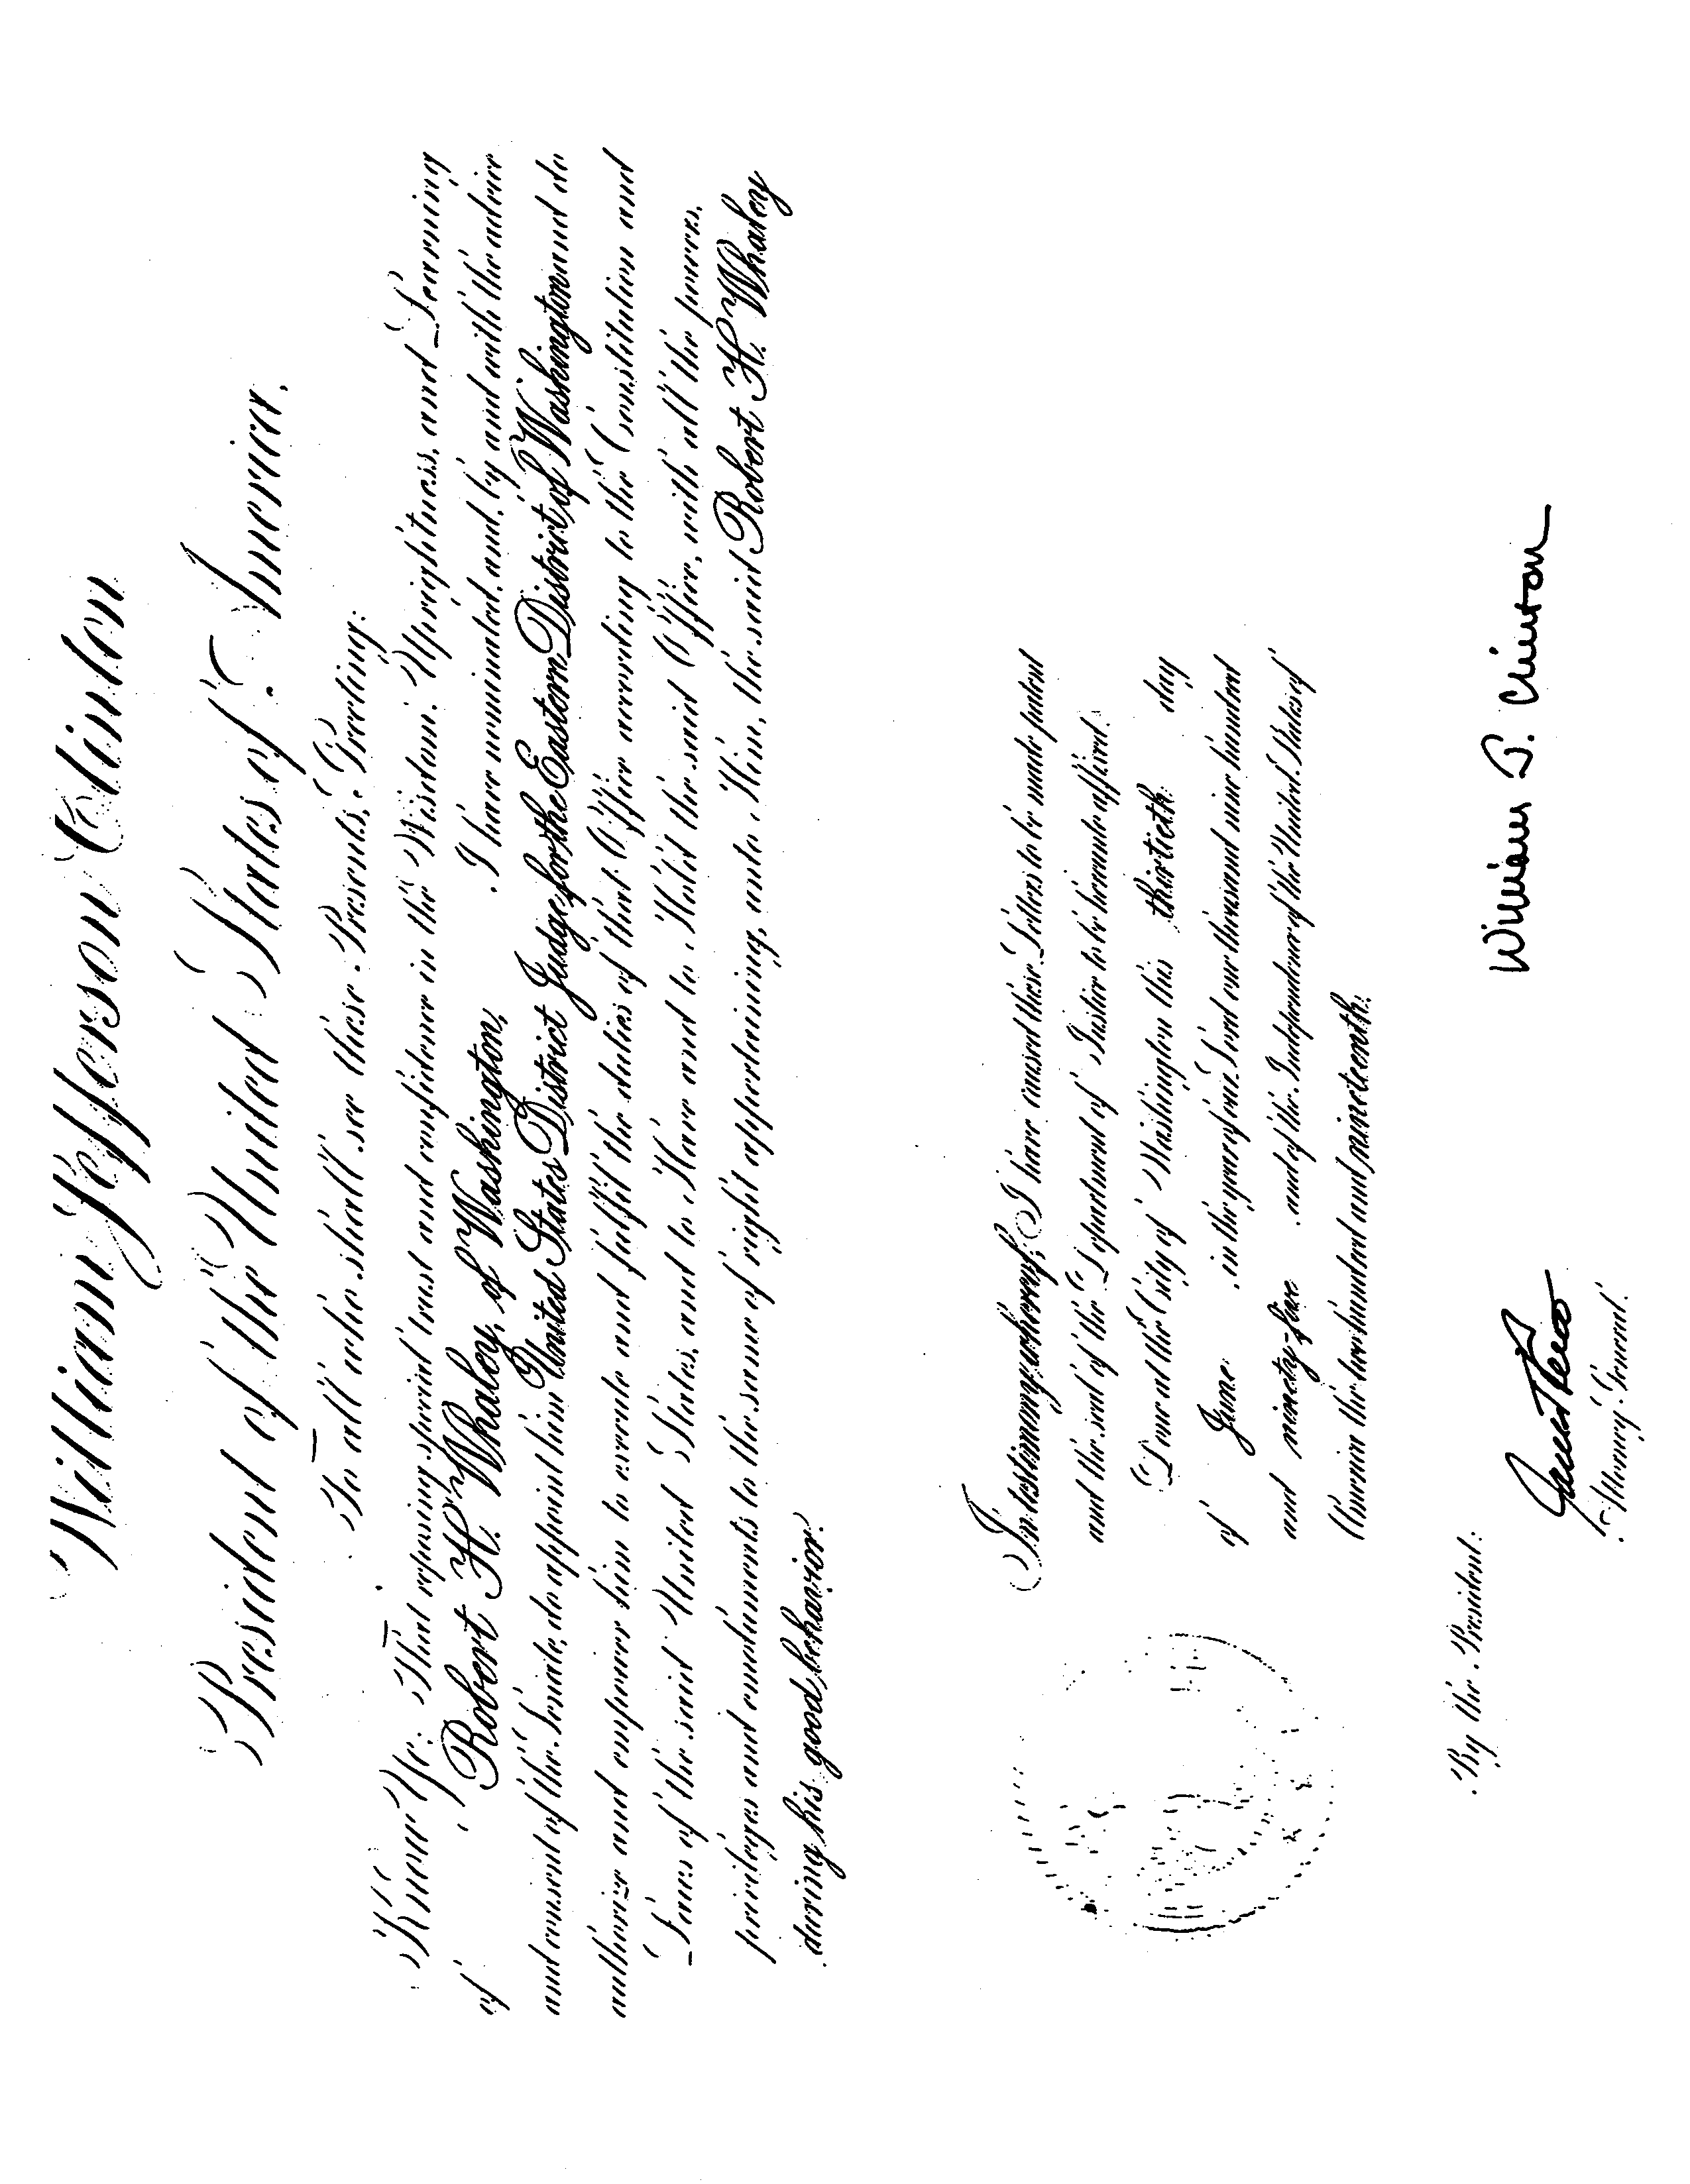 William Jefferson Clinton
President of the United States of America.
To all who shall see these Presents, Greeting:
Know Ye: That reposing special trust and confidence in the Wisdom, Uprightness, and Learning
of Robert H. Whaley, of Washington, I have nominated, and, by and with the advice
and consent of the Senate, do appoint him United States District Judge for the Eastern District of Washington and do
authorize and empower him to execute and fulfil the duties of that Office according to the Constitution and
Laws of the said United States, and to Have and to Hold the said Office, with all the powers,
privileges and emoluments to the same of right appertaining, unto Him, the said Robert H. Whaley
during his good behavior.
In testimony whereof, I have caused these Letters to be made patent
and the seal of the Department of Justice to be hereunto affixed.
Done at the City of Washington this thirtieth day
of June in the year of our Lord one thousand nine hundred
and ninety-five and of the Independence of the United States of
America the two hundred and nineteenth.
By the President:
William J. Clinton
Janet Reno
Attorney General.